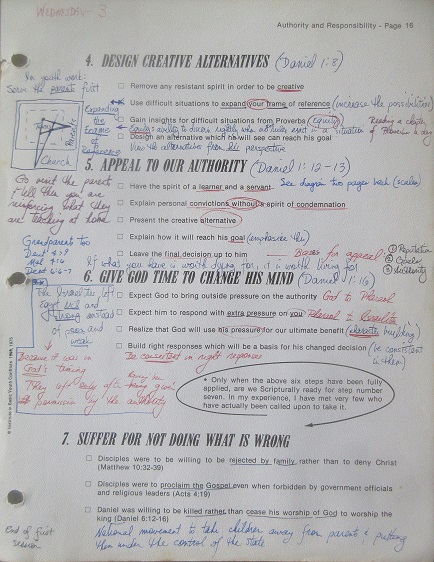 Wednesday - 3
Authority and Responsibility - Page 16
4. DESIGN CREATIVE ALTERNATIVES (Daniel 1:8)
In youth work:
Serve the parents first
Remove any resistant spirit in order to be creative
Use difficult situations to expand your frame of reference (increase the possibilities)
Expanding the Frame of Reference
Gain insights for difficult situations from Proverbs (equity) Reading a chapter of Proverbs a day
Design an alternative which he will see can reach his goal
View the alternatives from his perspective
Family
Church
5. APPEAL TO OUR AUTHORITY (Daniel 1:12-13)
Go visit the parents
& tell them you are
reinforcing what they
are teaching at home
Have the spirit of a learner and a servant. See diagram two pages back (scales)
Explain personal convictions without a spirit of condemnation
Present the creative alternative
Explain how it will reach his goal (emphasize this)
Leave the final decision up to him Basis for appeal
① Reputation
③ Authority
Grandparents too
Deut 4:9
Deut 6:6-7
If what you have is worth dying for, it is worth living for
6. GIVE GOD TIME TO CHANGE HIS MIND (Daniel 1:15)
Expect God to bring outside pressure on the authority God to Pharaoh
Expect him to respond with extra pressure on you Pharaoh to Israelite
Realize that God will use his pressure for our ultimate benefit (character building)
Build right responses which will be a basis for his changed decision (be consistent in them)
Be consistent in right responses
The Israelites left
Egypt rich and
strong instead
of poor and
weak
Because it was in
God's timing
They left only after being given
permission by the authority
• Only when the above six steps have been fully
applied, are we Scripturally ready for step number
seven. In my experience, I have met very few who
have actually been called upon to take it.
7. SUFFER FOR NOT DOING WHAT IS WRONG
Disciples were to be willing to be rejected by family rather than to deny Christ
(Matthew 10:32-39)
Disciples were to proclaim the Gospel even when forbidden by government officials
and religious leaders (Acts 4:19)
Daniel was willing to be killed rather than cease his worship of God to worship the
king (Daniel 6:12-16)
End of first
session
National movement to take children away from parents & putting
them under the control of the state